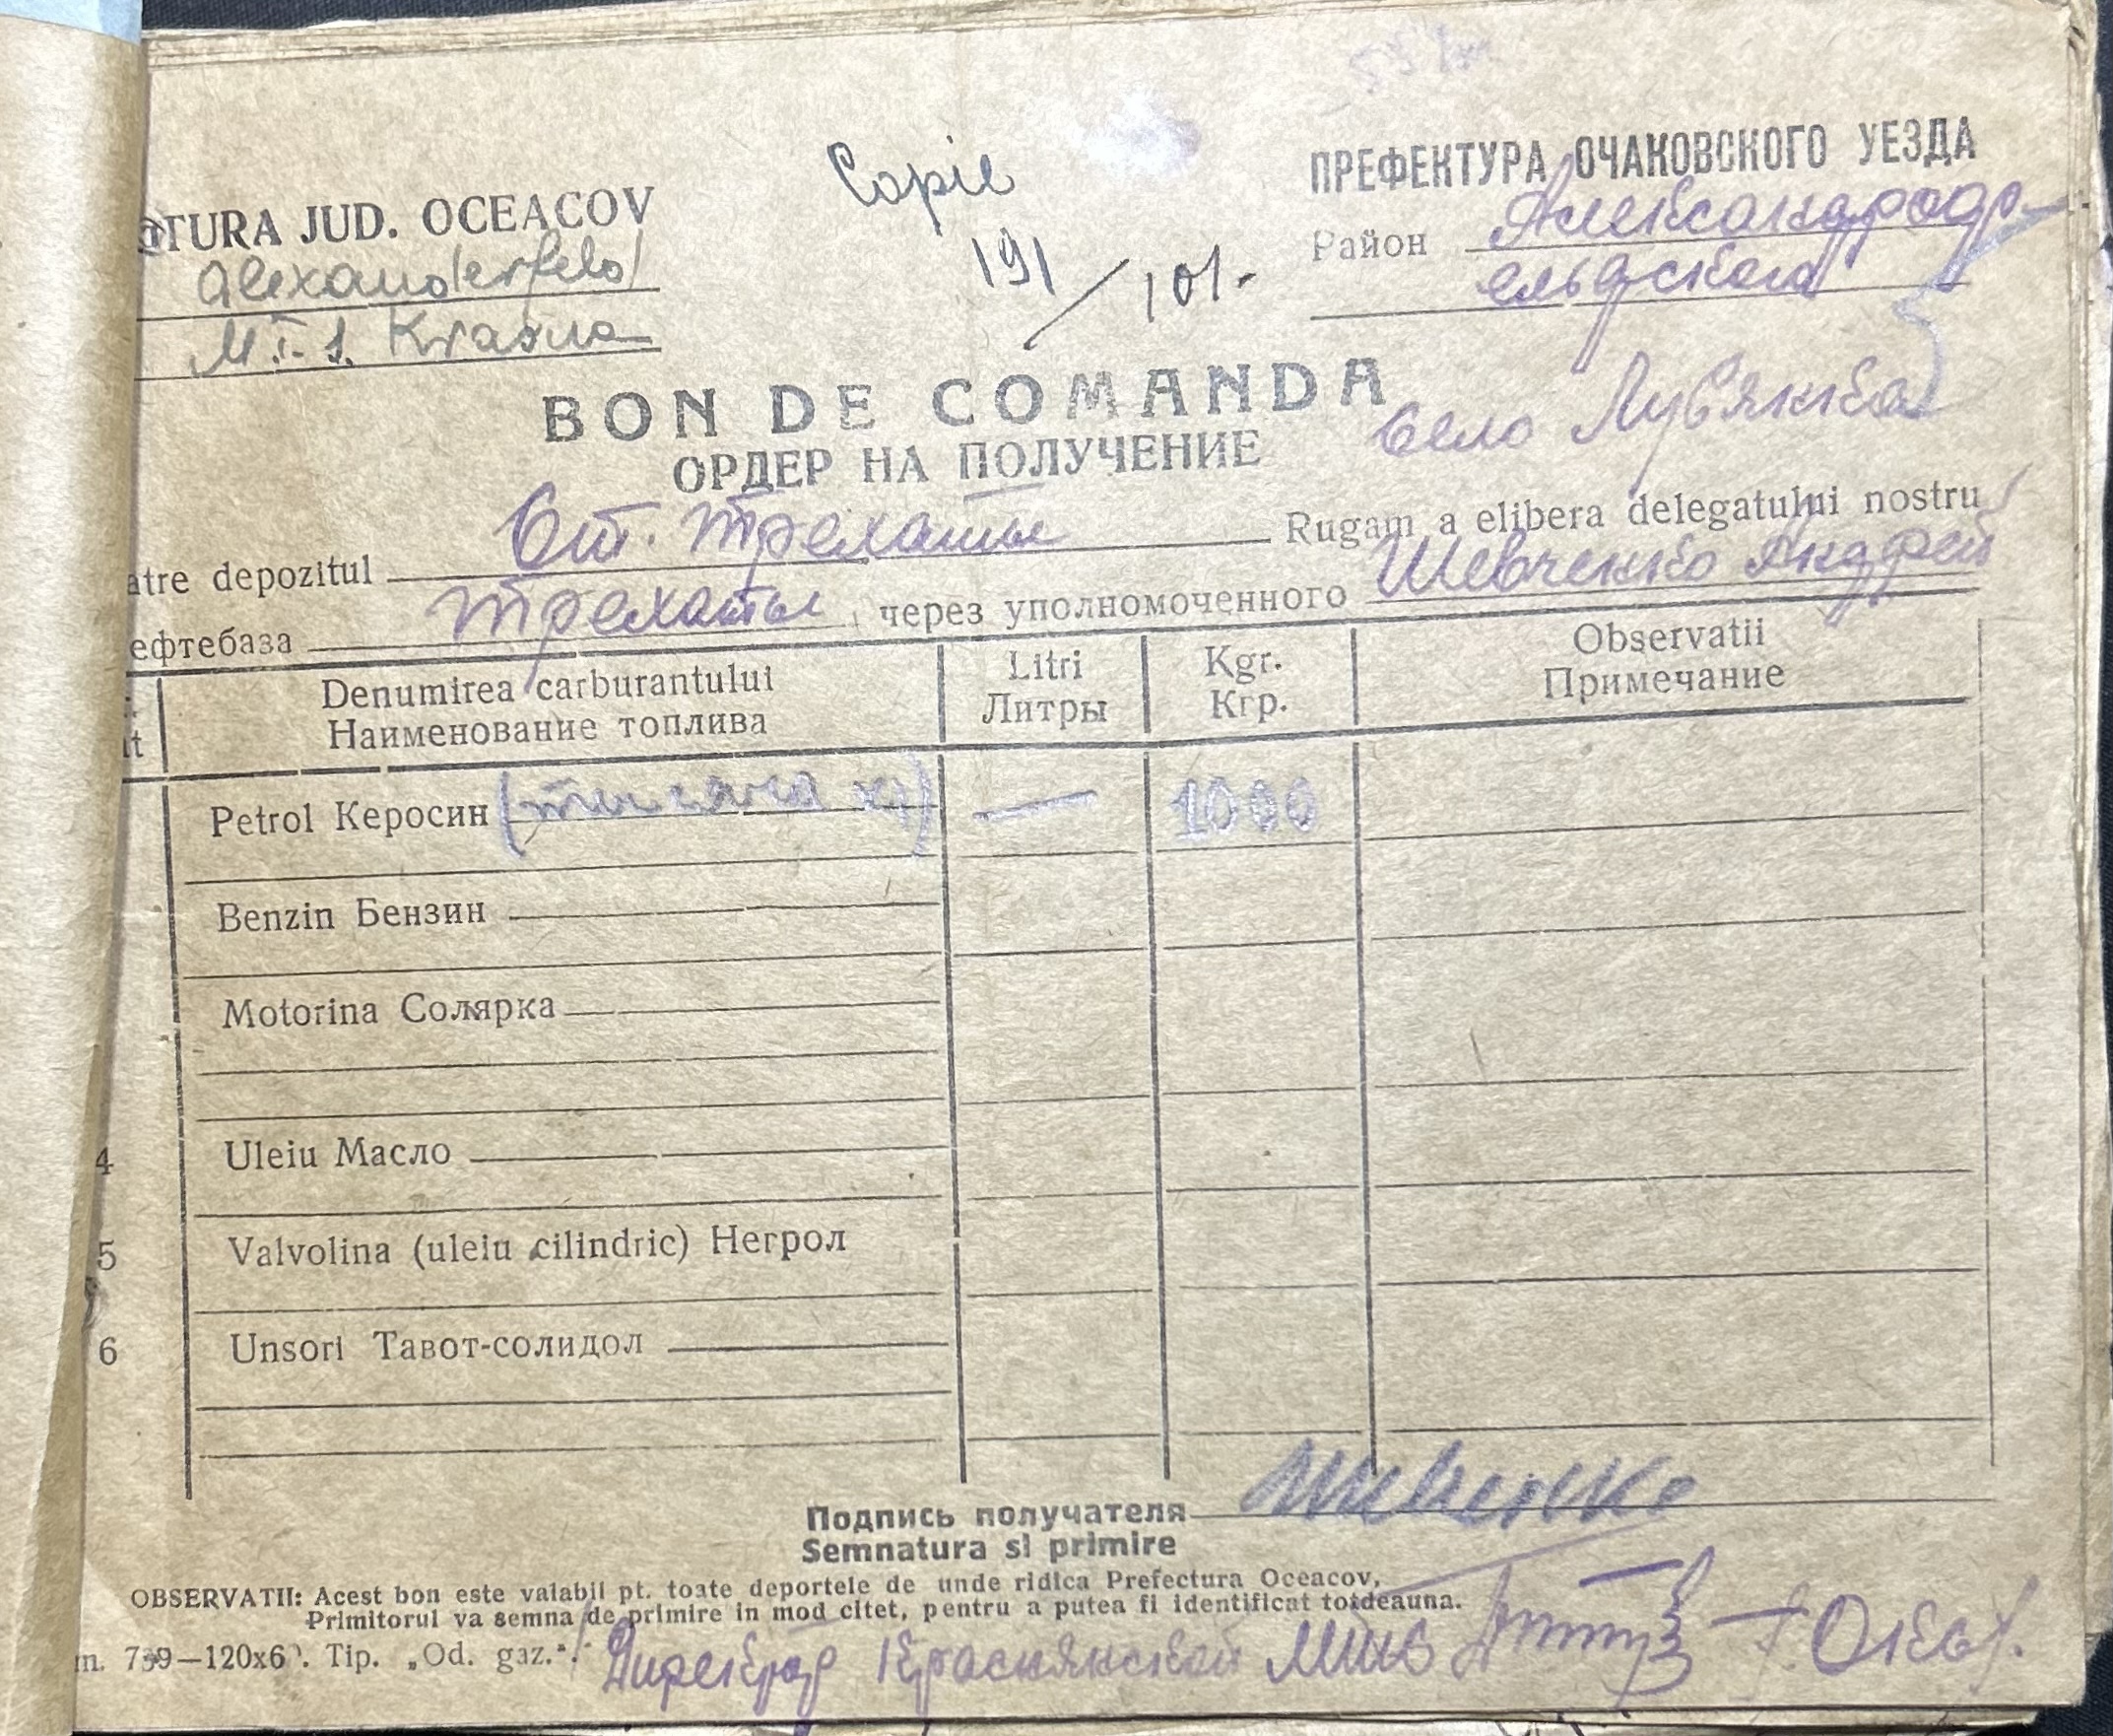 TURA JUD. OCEACOV
Alexanderfeld
M.T.S. Krasna
Copie
191/101.
ПРЕФЕКТУРА ОЧАКОВСКОГО УЕЗДА
Район Александроф-
ельдского
BON DE COMANDA
ОРДЕР НА ПОЛУЧЕНИЕ
Село Лубянка
atre depozitul Ст. Трехаты Rugam a elibera delegatului nostru
ефтебаза Трехаты, через уполномоченного Шевченко Андрей
Denumirea carburantului Litri Kgr. Observatii
Наименование топлива Литры Кгр. Примечание
Petrol Керосин (тысяча кг) — 1000
Benzin Бензин
Motorina Солярка
4 Uleiu Масло
5 Valvolina (uleiu cilindric) Негрол
6 Unsori Тавот-солидол
Подпись получателя Шевченко
Semnatura si primire
OBSERVATII: Acest bon este valabil pt. toate deportele de unde ridica Prefectura Oceacov,
Primitorul va semna de primire in mod citet, pentru a putea fi identificat totdeauna.
m. 739—120x6 . Tip. „Od. gaz.".
Директор Краснянской МТС